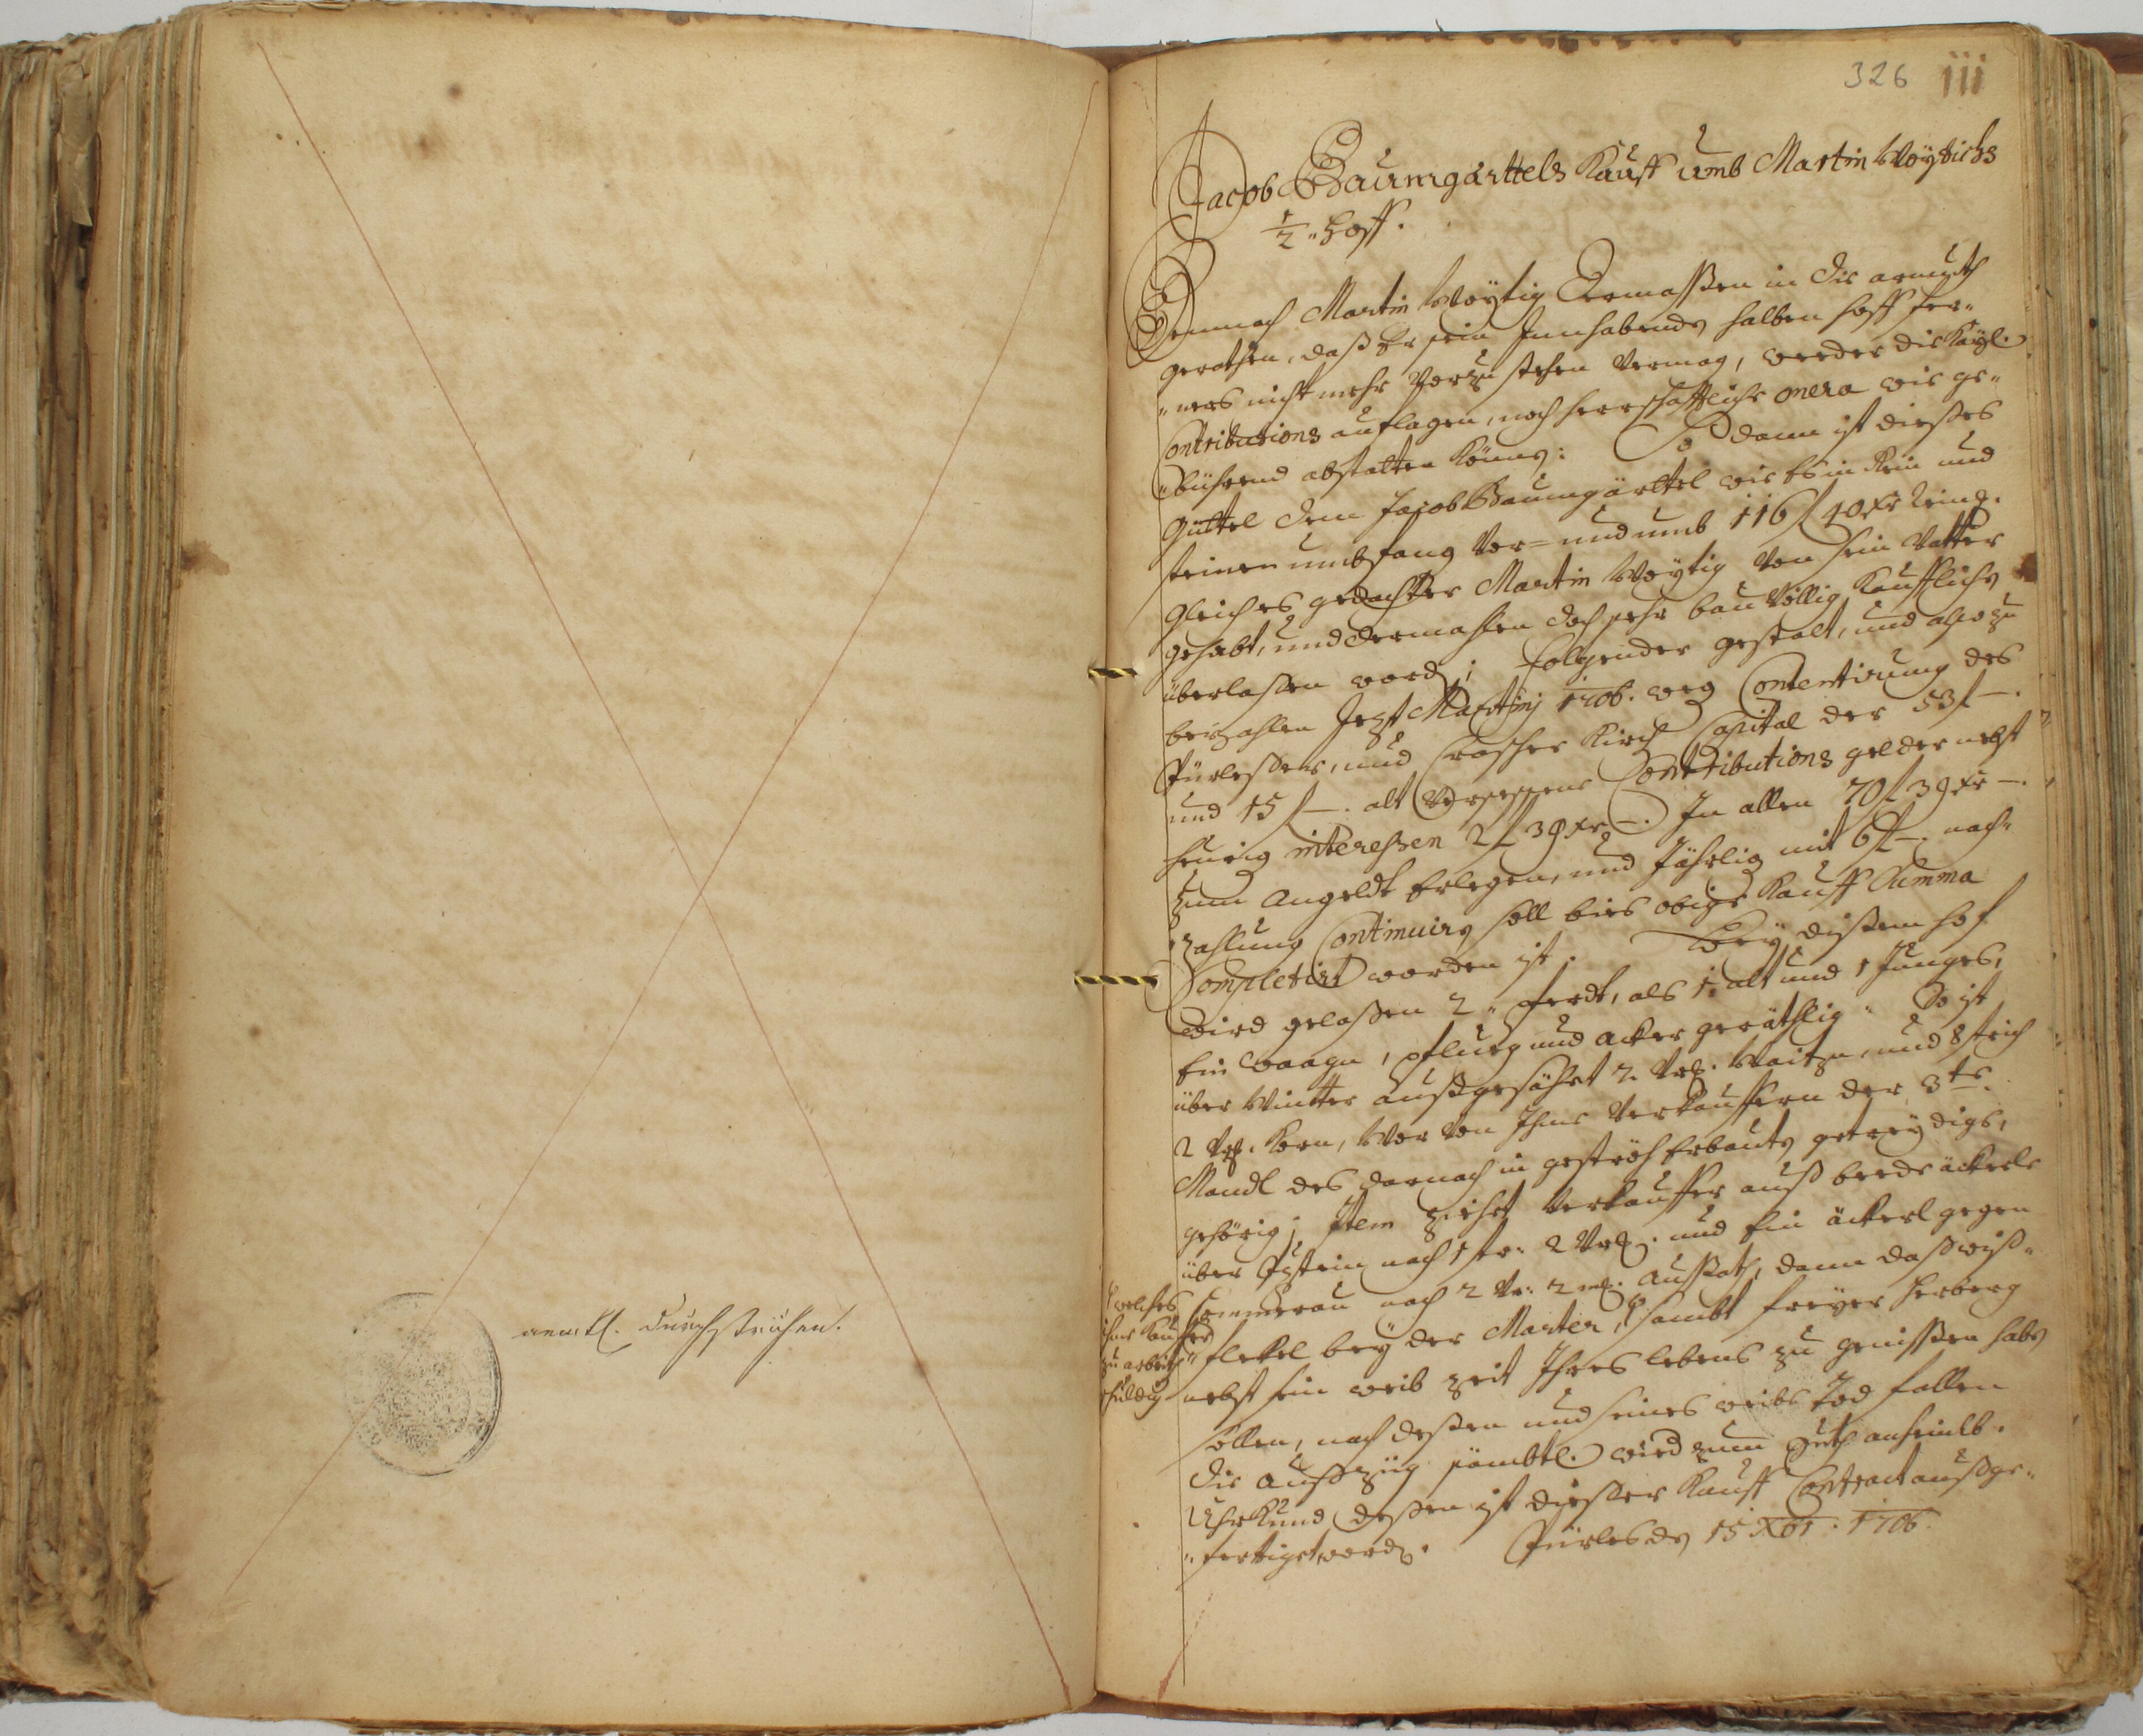 amtl. durchstrichen.
326 iii
Jacob Baumgärttels Kauff umb Martin Woÿtichs
1/2 " Hoff.
Demnach Martin Woÿtig dermassen in die armuth
gerathen, daß Er sein Innhabendes halben hoff fer"
"ners nicht mehr Vorzustehen Vermag, weeder die Kaÿl.
Contributions auflagen, noch herrschafftliche onera wie ge"
"bührend abstatten könne: So dann ist dießes
Güttel dem Jacob Baumgärttel wie es in Rein und
steinen umbfang Vor= und umb 116 f 40 xr Reinß.
gleich es gedachter Martin Woÿtig Von sein Vatter
gehabt, und dermahlen doch sehr bau Völlig Kaufflichen
überlaßen word; folgender gestalt, und also zu
bezahlen Jezt Martinj 1706. weg Contentirung des
Pürlesser, und Kirch Capital der 53 f —.
und 15 f —. alt Versessene Contributions gelder nebst
heurig interessen 2 f 39 xr —. In allen 70 f 39 xr —.
zum Angeldt Erlegen, und Jährlig mit 6 f —. nach"
"zahlung Continuiren soll bies obige Kauff Summa
Completirt worden ist. Beÿ dißem hof
wird gelaßen 2 " Pferdt, als 1. alt und 1 Junges,
Ein waagn, Pflug und acker geräthlig. So ist
über Wintter außgesähet 2. Vrß. Waitzn, und 8 strich
2 Vrß. Korn, Wor Von Ihme Verkauffern der 3te
Mandl des darnach in geströh Erbauten getreÿdigs,
gehörig; Item ziehet Verkauffer auß beede äckerle
über nach 1 str: 2 Vrß. und Ein äckerl gegen
Sommerau nach 2 Vr: 2 mß. Außath, dann daß wiß"
"flekel beÿ der Marter, sambt freÿer herberg
nebst sein weib zeit Ihres lebens zu genissen haben
sollen, nach deßen und seines weibs Tod fallen
die Außzüg sämbtl. wird zum Guth anheimb.
Uhrkund deßen ist dießer Kauff Contract außge"
"fertiget word. Pürles den 15 Xbr. 1706.
welches
ihme Kauffer
zu arbeith
schuldig